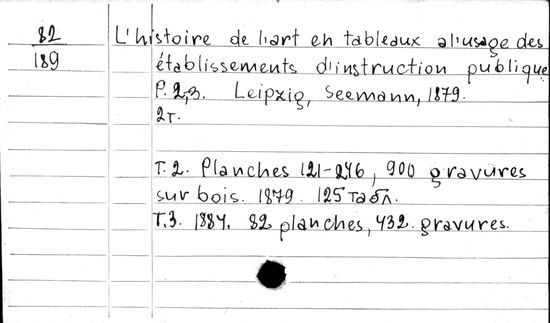 82
189
L'histoire de l'art en tableaux al'usage des
établissements d'instruction publique
P. 2,3. Leipzig, Seemann, 1879.
2т.
T. 2. Planches 121-246, 900 gravures
sur bois. 1879. 125 табл.
T.3. 1884. 82 planches, 432. gravures.